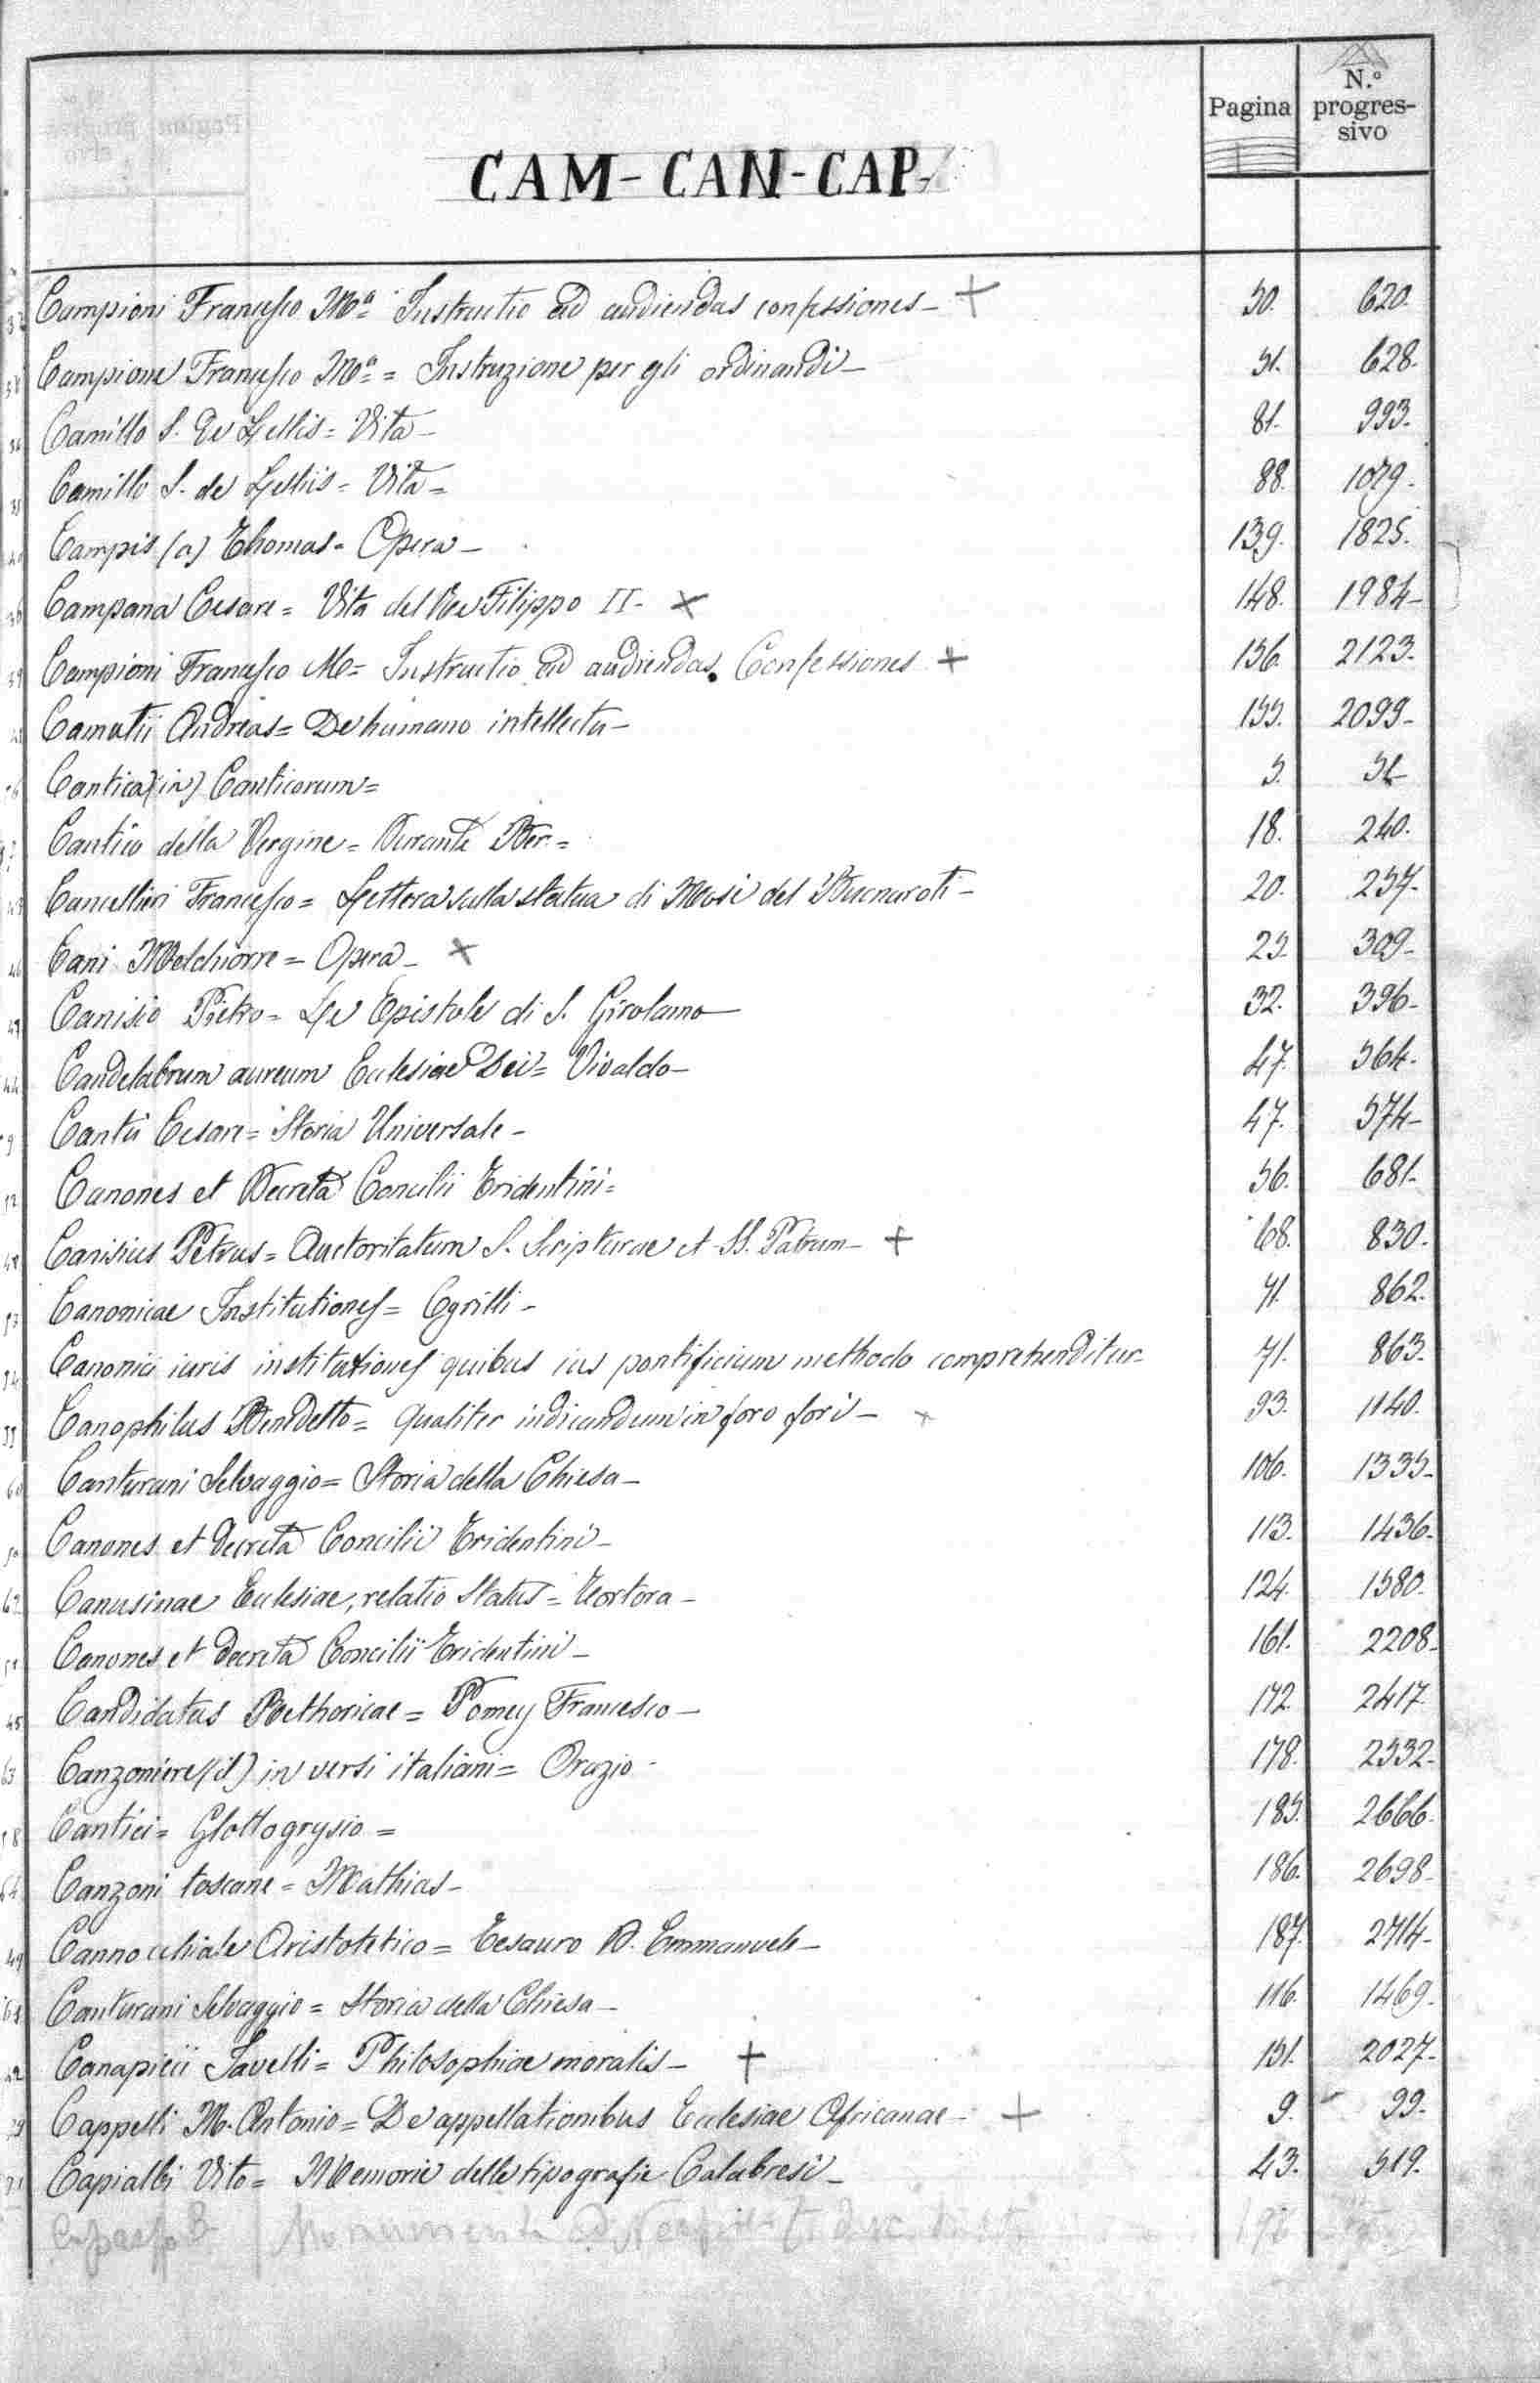 Pagina N.º progres-sivo
CAM - CAN - CAP -
Campioni Francesco Mª = Instructio ad audiendas confessiones - + 50. 620.
Campione Francesco Mª = Instruzione per gli ordinandi - 51. 628.
Camillo S. De Lellis = Vita - 81. 993.
Camillo S. de Lellis = Vita = 88. 1079.
Campis (a) Thomas = Opera - 139. 1825.
Campana Cesare = Vita del Re Filippo II - x 148. 1984-
Campioni Francesco M = Instructio ad audiendas Confessiones + 156. 2123.
Camutii Andreas = De humano intellectu - 155. 2099-
Cantica (in) Canticorum = 5.
Cantico della Vergine = Durante Ber. = 18. 240.
Cancellieri Francesco = Lettera sulla statua di Mosè del Buonaroti - 20. 257-
Cani Melchiorre = Opera - x 25. 309-
Canisio Pietro = Le Epistole di S. Girolamo 32. 396-
Candelabrum aureum Ecclesiae Dei = Vivaldo - 47. 564.
Cantù Cesare = Storia Universale - 47. 574-
Canones et Decreta Concilii Tridentini = 56. 681.
Canisius Petrus = Auctoritatum S. Scripturae et SS. Patrum - + 68. 830.
Canonicae Institutiones = Cyrilli - 71. 862.
Canonici iuris institutiones quibus ius pontificium methodo comprehenditur - 71. 863.
Canophilus Benedetto = Qualiter indicandum in foro fori - + 93. 1140.
Canturani Selvaggio = Storia della Chiesa - 106. 1335-
Canones et decreta Concilii Tridentini - 113. 1436.
Canusinae Ecclesiae, relatio Status = Tortora - 124. 1580.
Canones et decreta Concilii Tridentini - 161. 2208.
Candidatus Rethoricae = Pomey Francesco - 172. 2417.
Canzoniere (il) in versi italiani = Orazio - 178. 2532-
Cantici = Glottogrysio = 185. 2666.
Canzoni toscane = Mathias - 186. 2698-
Cannocchiale Aristotetico = Tesauro D. Emmanuele - 187. 2714-
Canturani Selvaggio = Storia della Chiesa - 116. 1469.
Canapicii Savelli = Philosophiae moralis - + 151. 2027-
Cappelli M. Antonio = De appellationibus Ecclesiae Africanae - + 9. 99.
Capialbi Vito = Memorie delle tipografie Calabresi - 43. 519.
Capasso B. Monumenta